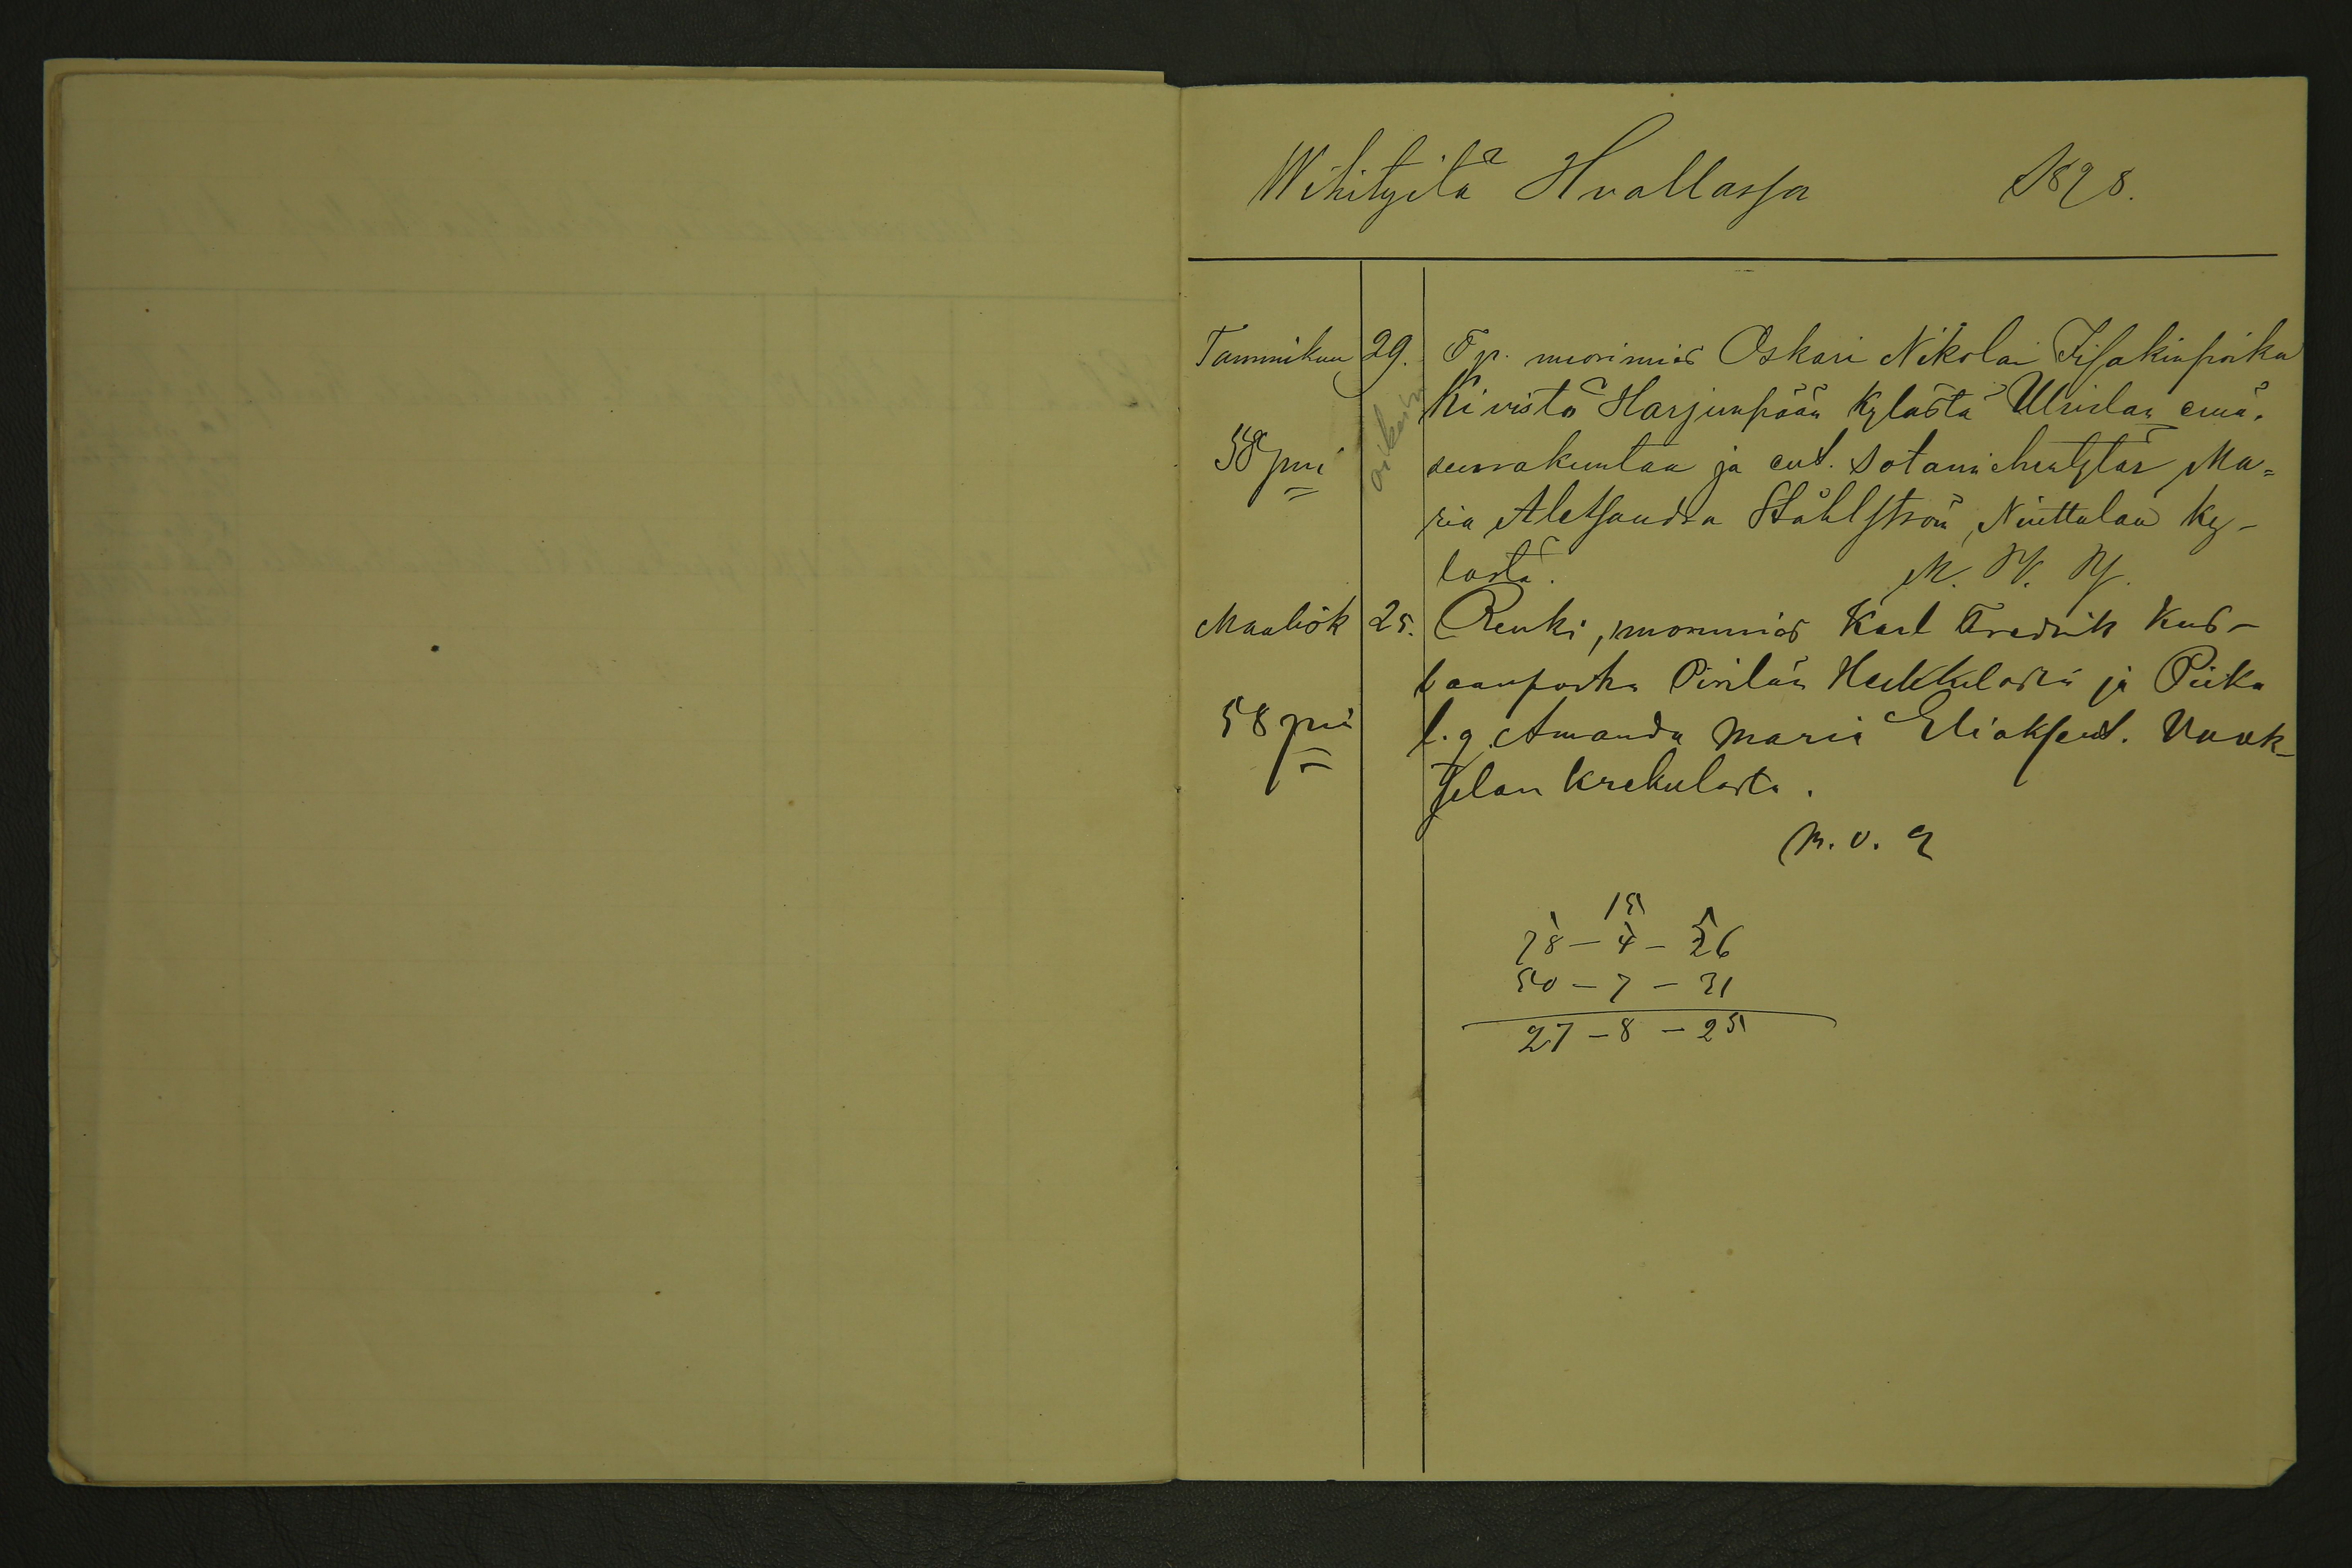 Wihityitä Hvallassa 1898.
Tammikuu 29. Tp. nuorimies Oskari Nikolai Iisakinpoika
Kivistö Harjunpään kylästä Ulvilan emä-
58 pni seurakuntaa ja ent. sotamiehentytär Ma=
ria Aleksandra Ståhlström, Niittulan ky-
lästä. M. W. W.
Maalisk 25. Renki, nuorimies Karl Fredrik Kus-
taanpoika Pirilän Heikkilästä ja Piika
58 pni l. g. Amanda Maria Eliaksent. Vuok-
selan Krekulasta.
m. v. q
15
78 - 4 - 26
50 - 7 - 31
27 - 8 - 25